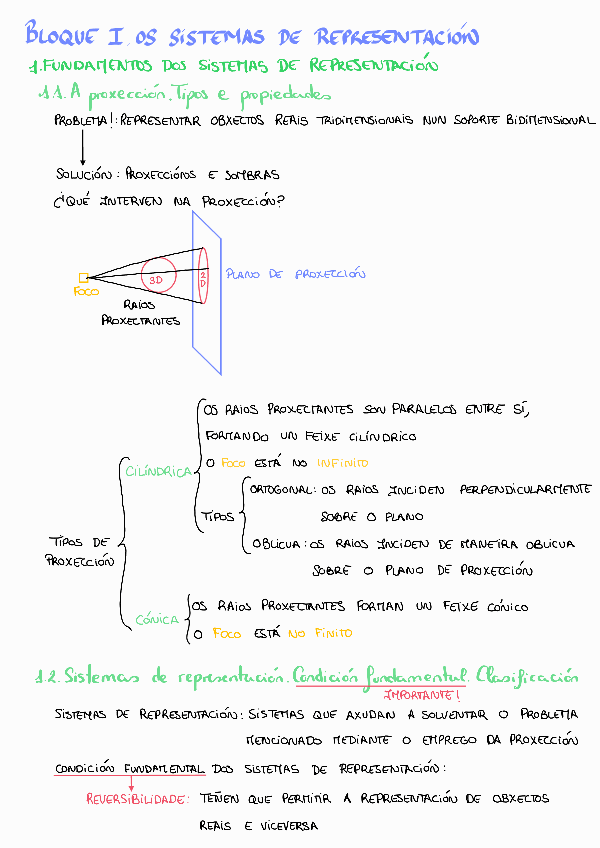 BLOQUE I. OS SISTEMAS DE REPRESENTACIÓN
1. FUNDAMENTOS DOS SISTEMAS DE REPRESENTACIÓN
1.1. A proxección. Tipos e propiedades
PROBLEMA!: REPRESENTAR OBXECTOS REAIS TRIDIMENSIONAIS NUN SOPORTE BIDIMENSIONAL
SOLUCIÓN: PROXECCIÓNS E SOMBRAS
¿QUÉ INTERVEN NA PROXECCIÓN?
PLANO DE PROXECCIÓN
3D
2D
FOCO
RAIOS
PROXECTANTES
OS RAIOS PROXECTANTES SON PARALELOS ENTRE SÍ,
FORMANDO UN FEIXE CILÍNDRICO
CILÍNDRICA
O FOCO ESTÁ NO INFINITO
ORTOGONAL: OS RAIOS INCIDEN PERPENDICULARMENTE
TIPOS
SOBRE O PLANO
TIPOS DE
PROXECCIÓN
OBLICUA: OS RAIOS INCIDEN DE MANEIRA OBLICUA
SOBRE O PLANO DE PROXECCIÓN
CÓNICA
OS RAIOS PROXECTANTES FORMAN UN FEIXE CÓNICO
O FOCO ESTÁ NO FINITO
1.2. Sistemas de representación. Condición fundamental. Clasificación
IMPORTANTE!
SISTEMAS DE REPRESENTACIÓN: SISTEMAS QUE AXUDAN A SOLVENTAR O PROBLEMA
MENCIONADO MEDIANTE O EMPREGO DA PROXECCIÓN
CONDICIÓN FUNDAMENTAL DOS SISTEMAS DE REPRESENTACIÓN:
REVERSIBILIDADE: TEÑEN QUE PERMITIR A REPRESENTACIÓN DE OBXECTOS
REAIS E VICEVERSA